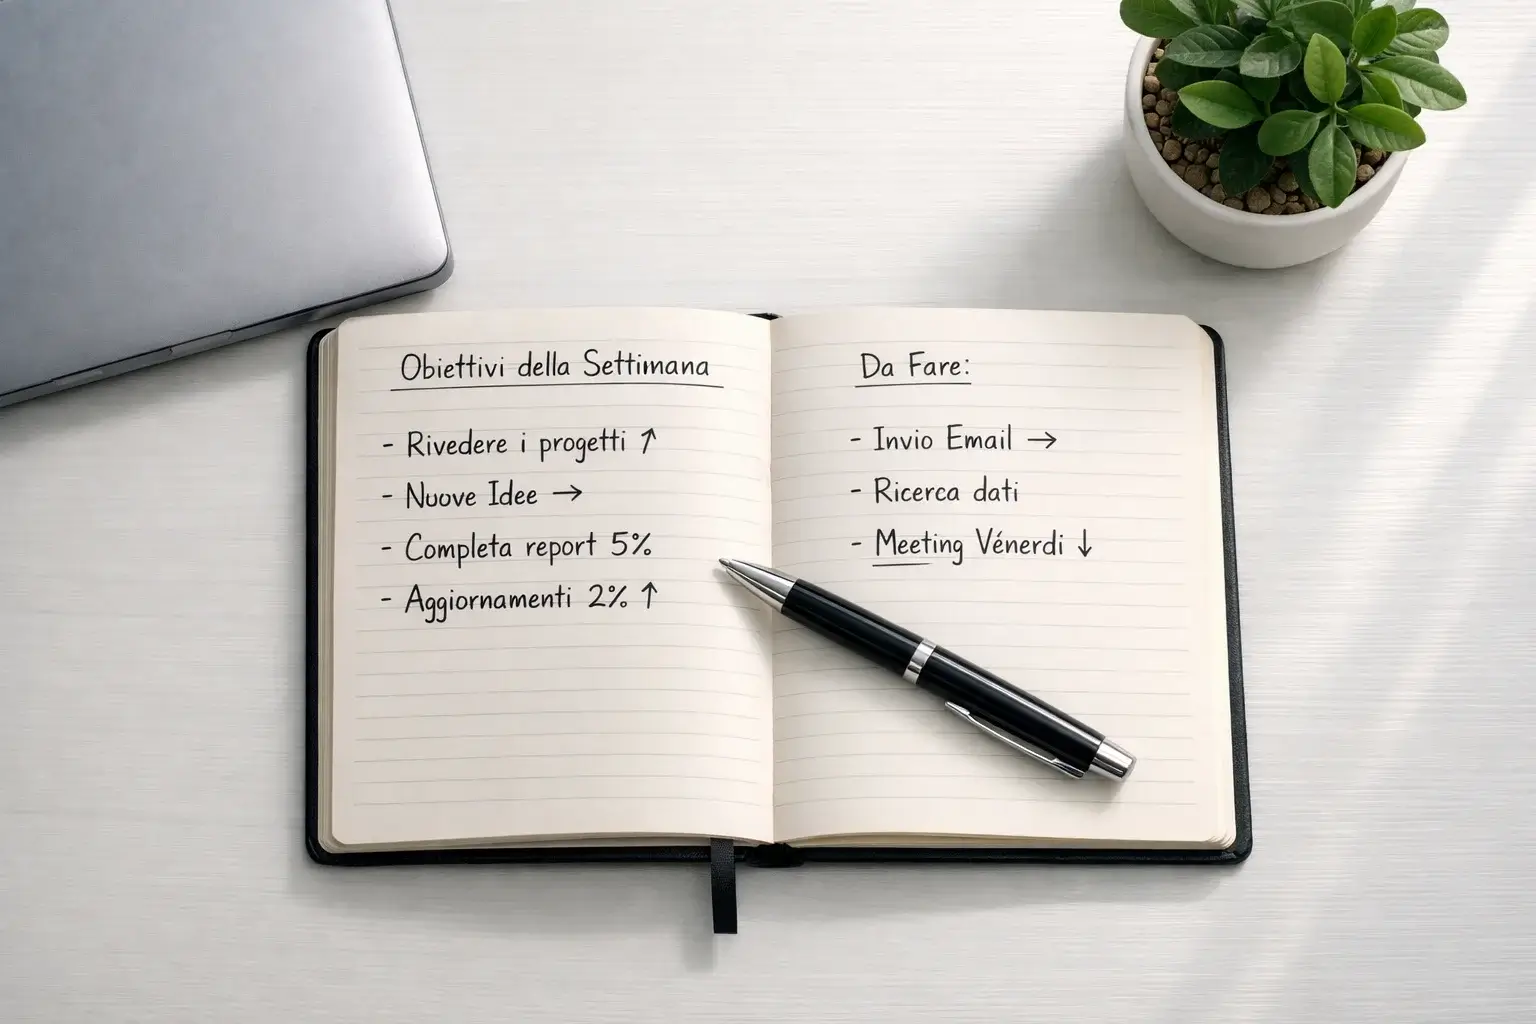 Obiettivi della Settimana
- Rivedere i progetti ↑
- Nuove Idee →
- Completa report 5%
- Aggiornamenti 2% ↑
Da Fare:
- Invio Email →
- Ricerca dati
- Meeting Vénerdi ↓